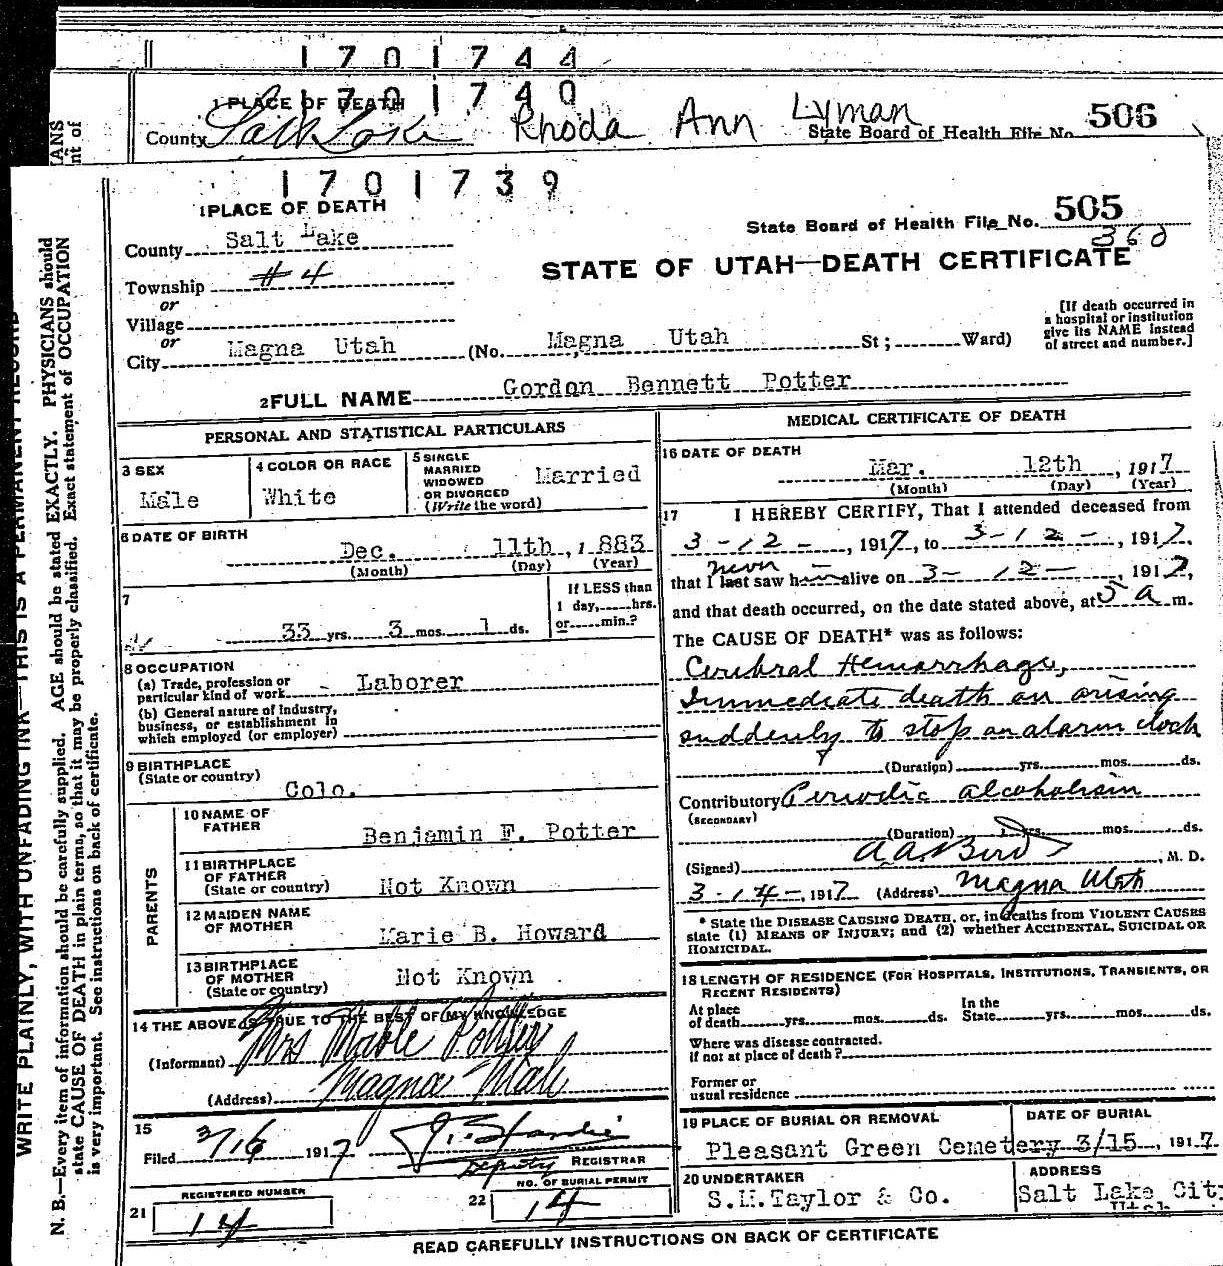 1 7 0 1 7 4 4
1 7 0 1 7 4 0
1 PLACE OF DEATH
County Salt Lake Rhoda Ann Lyman State Board of Health File No. 506
1 7 0 1 7 3 9
1 PLACE OF DEATH
State Board of Health File No. 505
360
County Salt Lake
STATE OF UTAH—DEATH CERTIFICATE
Township # 4
or
Village
or
City Magna Utah (No. Magna Utah St; Ward)
[If death occurred in
a hospital or institution
give its NAME instead
of street and number.]
2 FULL NAME Gordon Bennett Potter
PERSONAL AND STATISTICAL PARTICULARS
3 SEX
Male
4 COLOR OR RACE
White
5 SINGLE
MARRIED
WIDOWED
OR DIVORCED
(Write the word)
Married
6 DATE OF BIRTH
Dec. 11th, 1883
(Month) (Day) (Year)
7
33 yrs. 3 mos. 1 ds.
If LESS than
1 day, hrs.
or min.?
8 OCCUPATION
(a) Trade, profession or
particular kind of work Laborer
(b) General nature of Industry,
business, or establishment in
which employed (or employer)
9 BIRTHPLACE
(State or country)
Colo.
PARENTS
10 NAME OF
FATHER
Benjamin F. Potter
11 BIRTHPLACE
OF FATHER
(State or country) Not Known
12 MAIDEN NAME
OF MOTHER
Marie B. Howard
13 BIRTHPLACE
OF MOTHER
(State or country)
Not Known
14 THE ABOVE IS TRUE TO THE BEST OF MY KNOWLEDGE
(Informant) Mrs Mable Potter
(Address) Magna Utah
15
Filed 3/16 1917
Deputy REGISTRAR
REGISTERED NUMBER
21 14
NO. OF BURIAL PERMIT
22 14
MEDICAL CERTIFICATE OF DEATH
16 DATE OF DEATH
Mar. 12th, 1917
(Month) (Day) (Year)
17 I HEREBY CERTIFY, That I attended deceased from
3-12-, 1917, to 3-12-, 1917,
never
that I last saw him alive on 3-12-, 1917,
and that death occurred, on the date stated above, at 5 a m.
The CAUSE OF DEATH* was as follows:
Cerebral Hemorrhage,
Immediate death on arising
suddenly to stop an alarm clock
(Duration) yrs. mos. ds.
Contributory Periodic alcoholism
(SECONDARY)
(Duration) yrs. mos. ds.
(Signed) A. A. Bird, M. D.
3-14-, 1917 (Address) Magna Utah
* State the DISEASE CAUSING DEATH, or, in deaths from VIOLENT CAUSES
state (1) MEANS OF INJURY; and (2) whether ACCIDENTAL, SUICIDAL OR
HOMICIDAL.
18 LENGTH OF RESIDENCE (FOR HOSPITALS, INSTITUTIONS, TRANSIENTS, OR
RECENT RESIDENTS)
At place
of death yrs. mos. ds.
In the
State yrs. mos. ds.
Where was disease contracted.
if not at place of death?
Former or
usual residence
19 PLACE OF BURIAL OR REMOVAL
Pleasant Green Cemetery
DATE OF BURIAL
3/15, 1917.
20 UNDERTAKER
S.M. Taylor & Co.
ADDRESS
Salt Lake Cit
Utah
READ CAREFULLY INSTRUCTIONS ON BACK OF CERTIFICATE
WRITE PLAINLY, WITH UNFADING INK—THIS IS A PERMANENT RECORD
N. B.—Every item of information should be carefully supplied. AGE should be stated EXACTLY. PHYSICIANS should
state CAUSE OF DEATH in plain terms, so that it may be properly classified. Exact statement of OCCUPATION
is very important. See instructions on back of certificate.